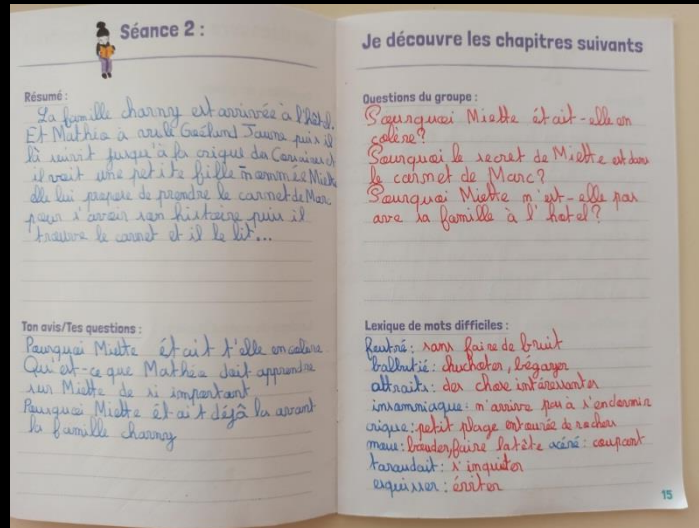 Séance 2 :
Résumé :
La famille charny est arrivée à l'hôtel.
Et Mathia à Goéland Jaune puis il
là suivit jusqu'à la crique des Corsaires et
il voit une petite fille nommée Miette
elle lui propose de prendre le carnet de Marc
pour s'avoir son histoire puis il
trouve le carnet et il le lit...
Ton avis/Tes questions :
Pourquoi Miette était t'elle en colère
Qui est-ce que Mathéa doit apprendre
sur Miette de si important
Pourquoi Miette étai't déjà la avant
la famille charny
Je découvre les chapitres suivants
Questions du groupe :
Pourquoi Miette était-elle en
colère ?
Pourquoi le secret de Miette est dans
le carnet de Marc ?
Pourquoi Miette n'est-elle pas
avec sa famille à l'hotel ?
Lexique de mots difficiles :
Feutré : sans faire de bruit
balbutié : chuchoter, bégayer
attraits : des chose intéressantes
insomniaque : n'arrive pas à s'endormir
crique : petit plage entourée de rochers
moue : bouder, faire la tête acéré : coupant
taraudait : s'inquiter
esquisser : éviter
15